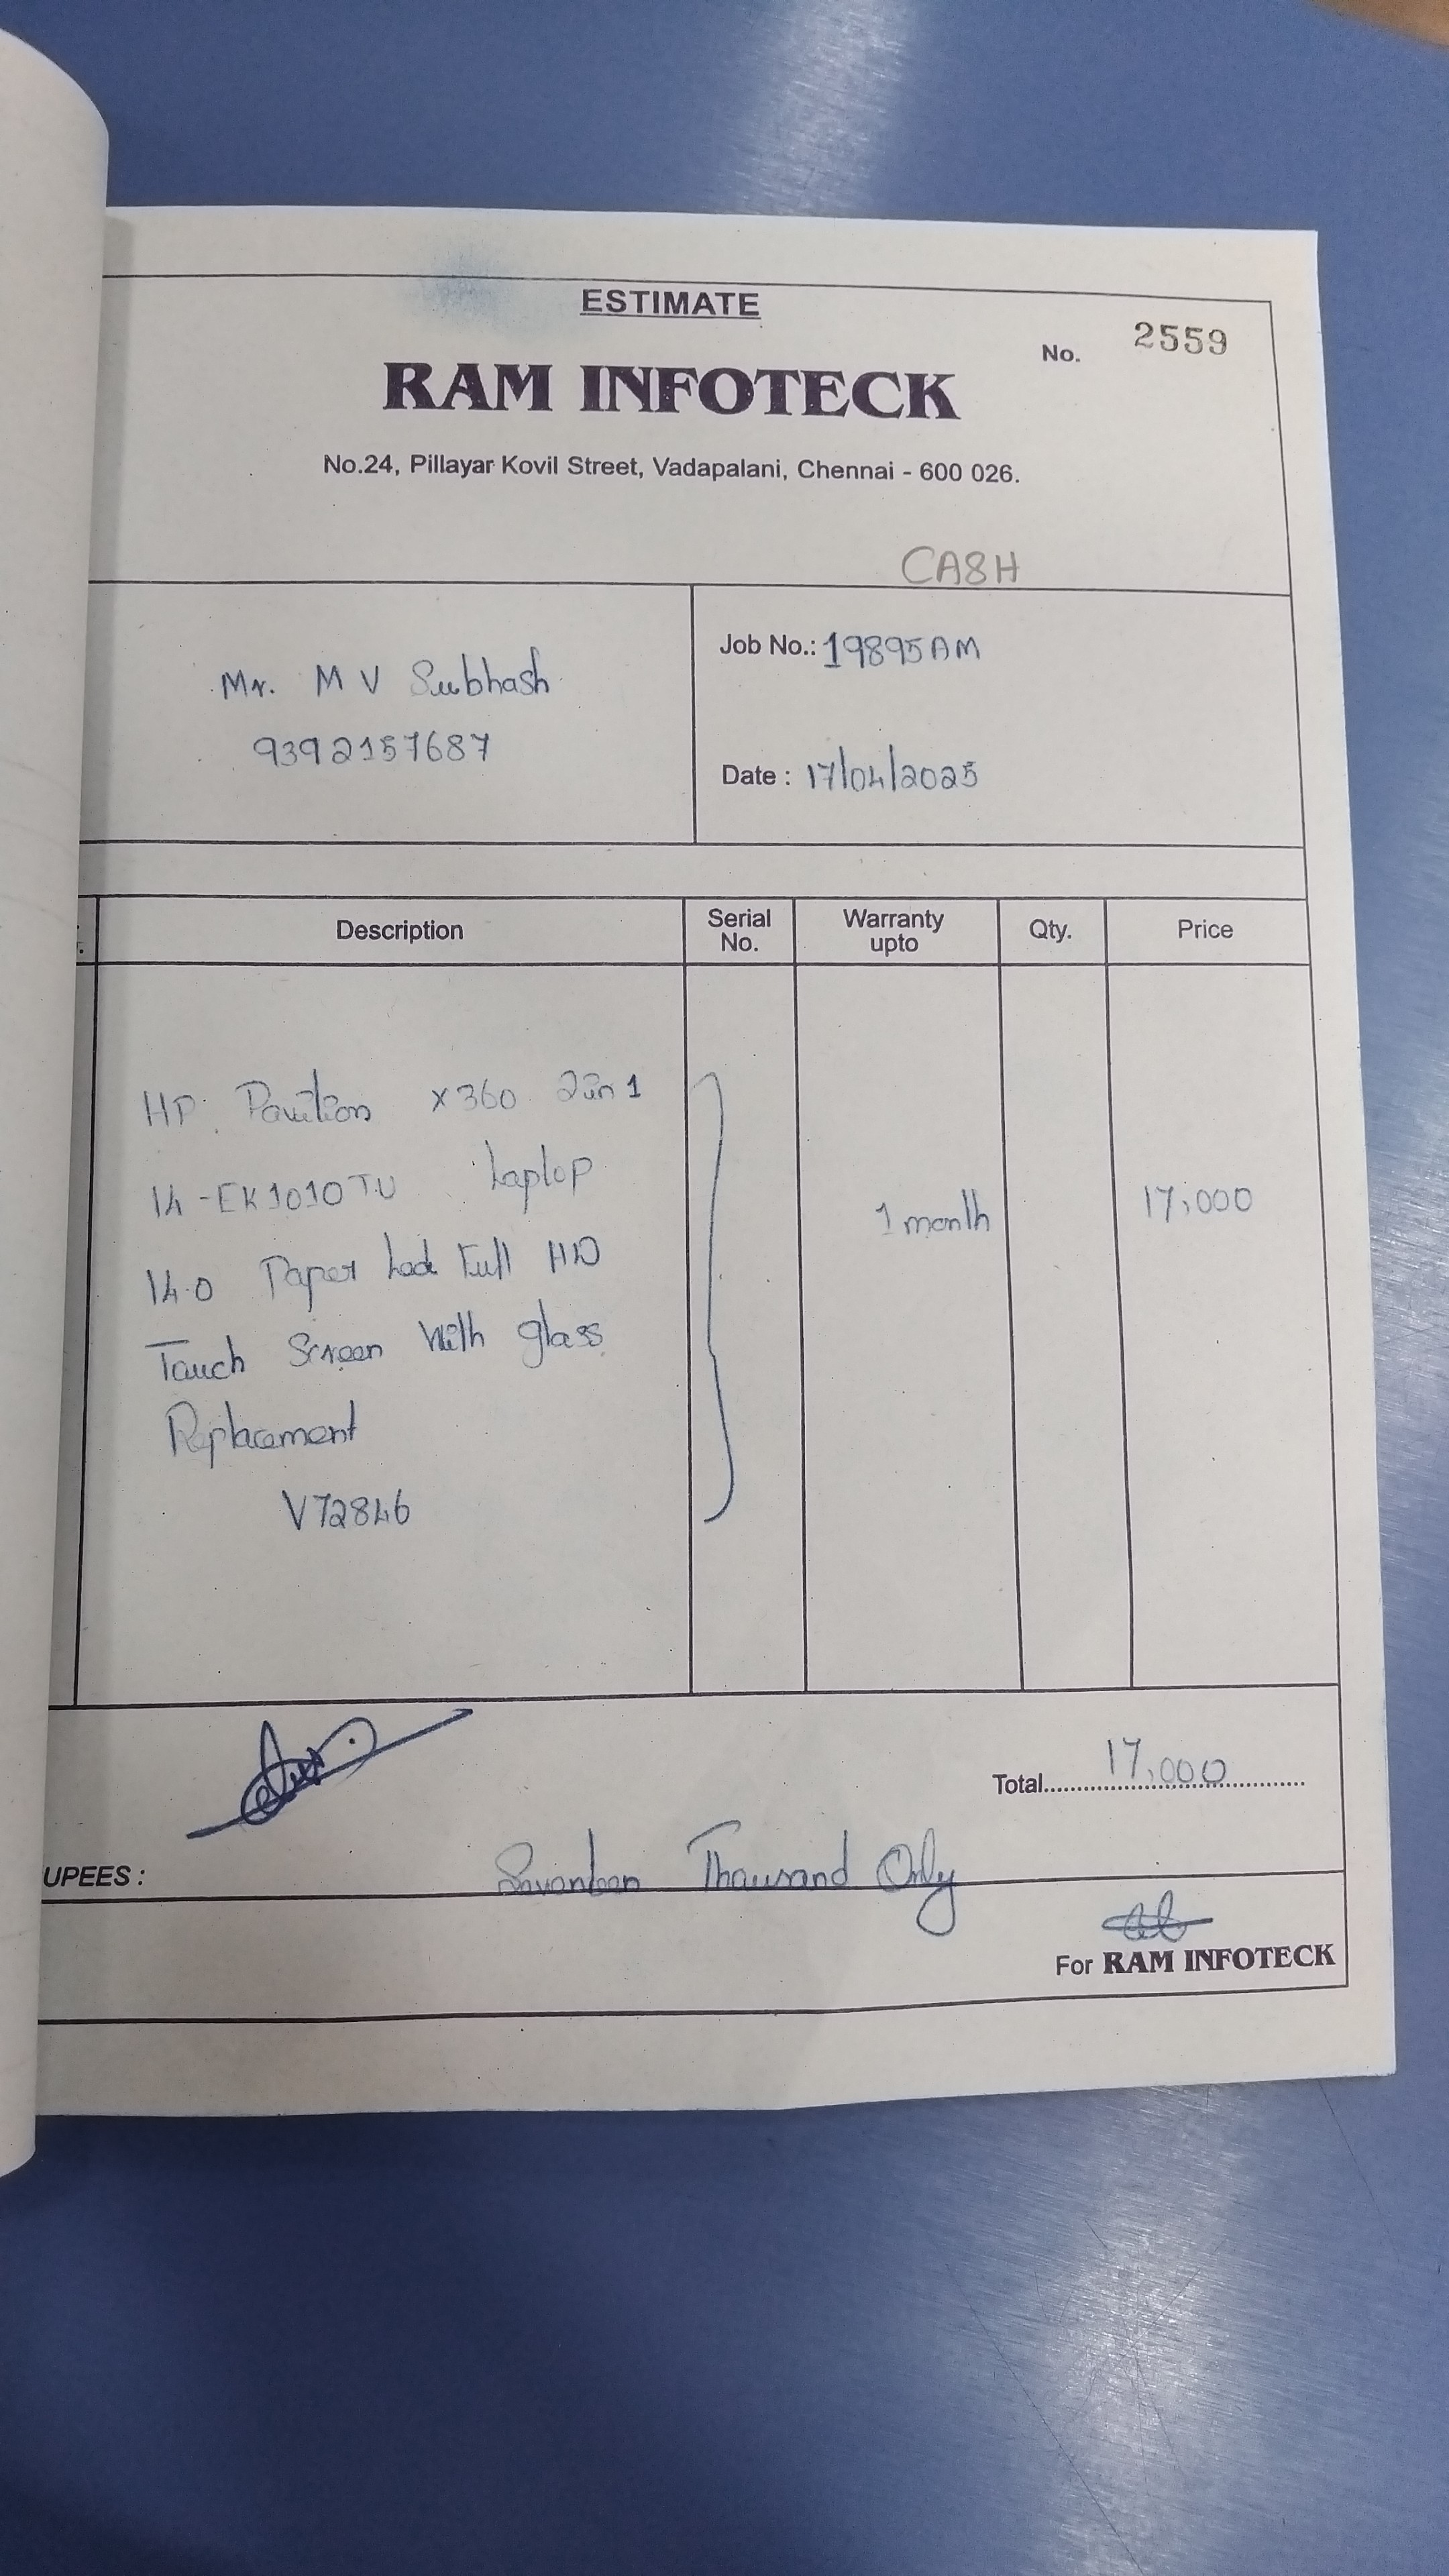 ESTIMATE
No. 2559
RAM INFOTECK
No.24, Pillayar Kovil Street, Vadapalani, Chennai - 600 026.
CASH
Mr. M V Subhash
9392157687
Job No.: 19895AM
Date : 17/04/2025
Description Serial No. Warranty upto Qty. Price
HP Pavilion x360 2in1
14-EK1010TU Laptop
14.0 Paper Led Full HD
Touch Screen With glass
Replacement
V72846
1 month
17,000
Total 17,000
UPEES : Seventeen Thousand Only
For RAM INFOTECK